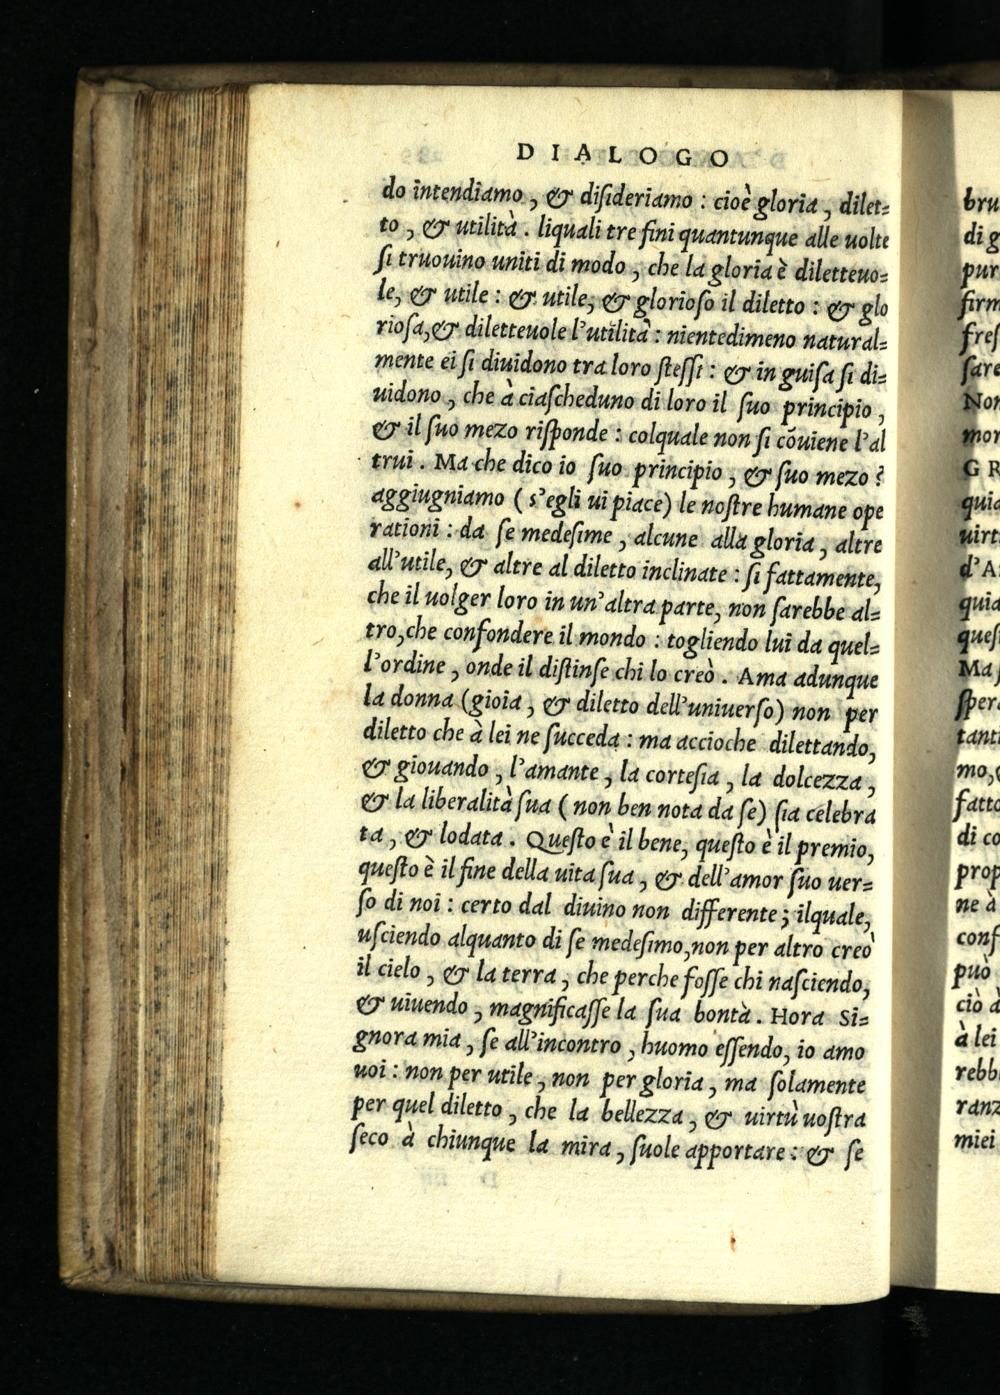 DIALOGO
do intendiamo, & diſideriamo : cioè gloria, dilet=
to, & utilità. liquali tre fini quantunque alle uolte
ſi truouino uniti di modo, che la gloria è diletteuo=
le, & utile : & utile, & glorioſo il diletto : & glo
rioſa, & diletteuole l'utilità : nientedimeno natural=
mente ei ſi diuidono tra loro ſteſſi : & in guiſa ſi di=
uidono, che à ciaſcheduno di loro il ſuo principio,
& il ſuo mezo riſponde : colquale non ſi cōuiene l'al
trui. Ma che dico io ſuo principio, & ſuo mezo ?
aggiugniamo ( s'egli ui piace) le noſtre humane ope
rationi : da ſe medeſime, alcune alla gloria, altre
all'utile, & altre al diletto inclinate : ſi fattamente,
che il uolger loro in un'altra parte, non ſarebbe al=
tro, che confondere il mondo : togliendo lui da quel=
l'ordine, onde il diſtinſe chi lo creò. Ama adunque
la donna (gioia, & diletto dell'uniuerſo) non per
diletto che à lei ne ſucceda : ma accioche dilettando,
& giouando, l'amante, la corteſia, la dolcezza,
& la liberalità ſua ( non ben nota da ſe) ſia celebra
ta, & lodata. Queſto è il bene, queſto è il premio,
queſto è il fine della uita ſua, & dell'amor ſuo uer=
ſo di noi : certo dal diuino non differente ; ilquale,
uſciendo alquanto di ſe medeſimo, non per altro creò
il cielo, & la terra, che perche foſſe chi naſciendo,
& uiuendo, magnificaſſe la ſua bontà. Hora Si=
gnora mia, ſe all'incontro, huomo eſſendo, io amo
uoi : non per utile, non per gloria, ma ſolamente
per quel diletto, che la bellezza, & virtù uoſtra
ſeco à chiunque la mira, ſuole apportare : & ſe
bru
di g
pur
firm
freſ
ſare
Non
mor
G R
quia
uirt
d'A
quia
queſ
Ma ſ
ſper
tant
mo,
fatto
di co
prop
ne à
conf
può
ciò à
à lei
rebb
ranz
miei